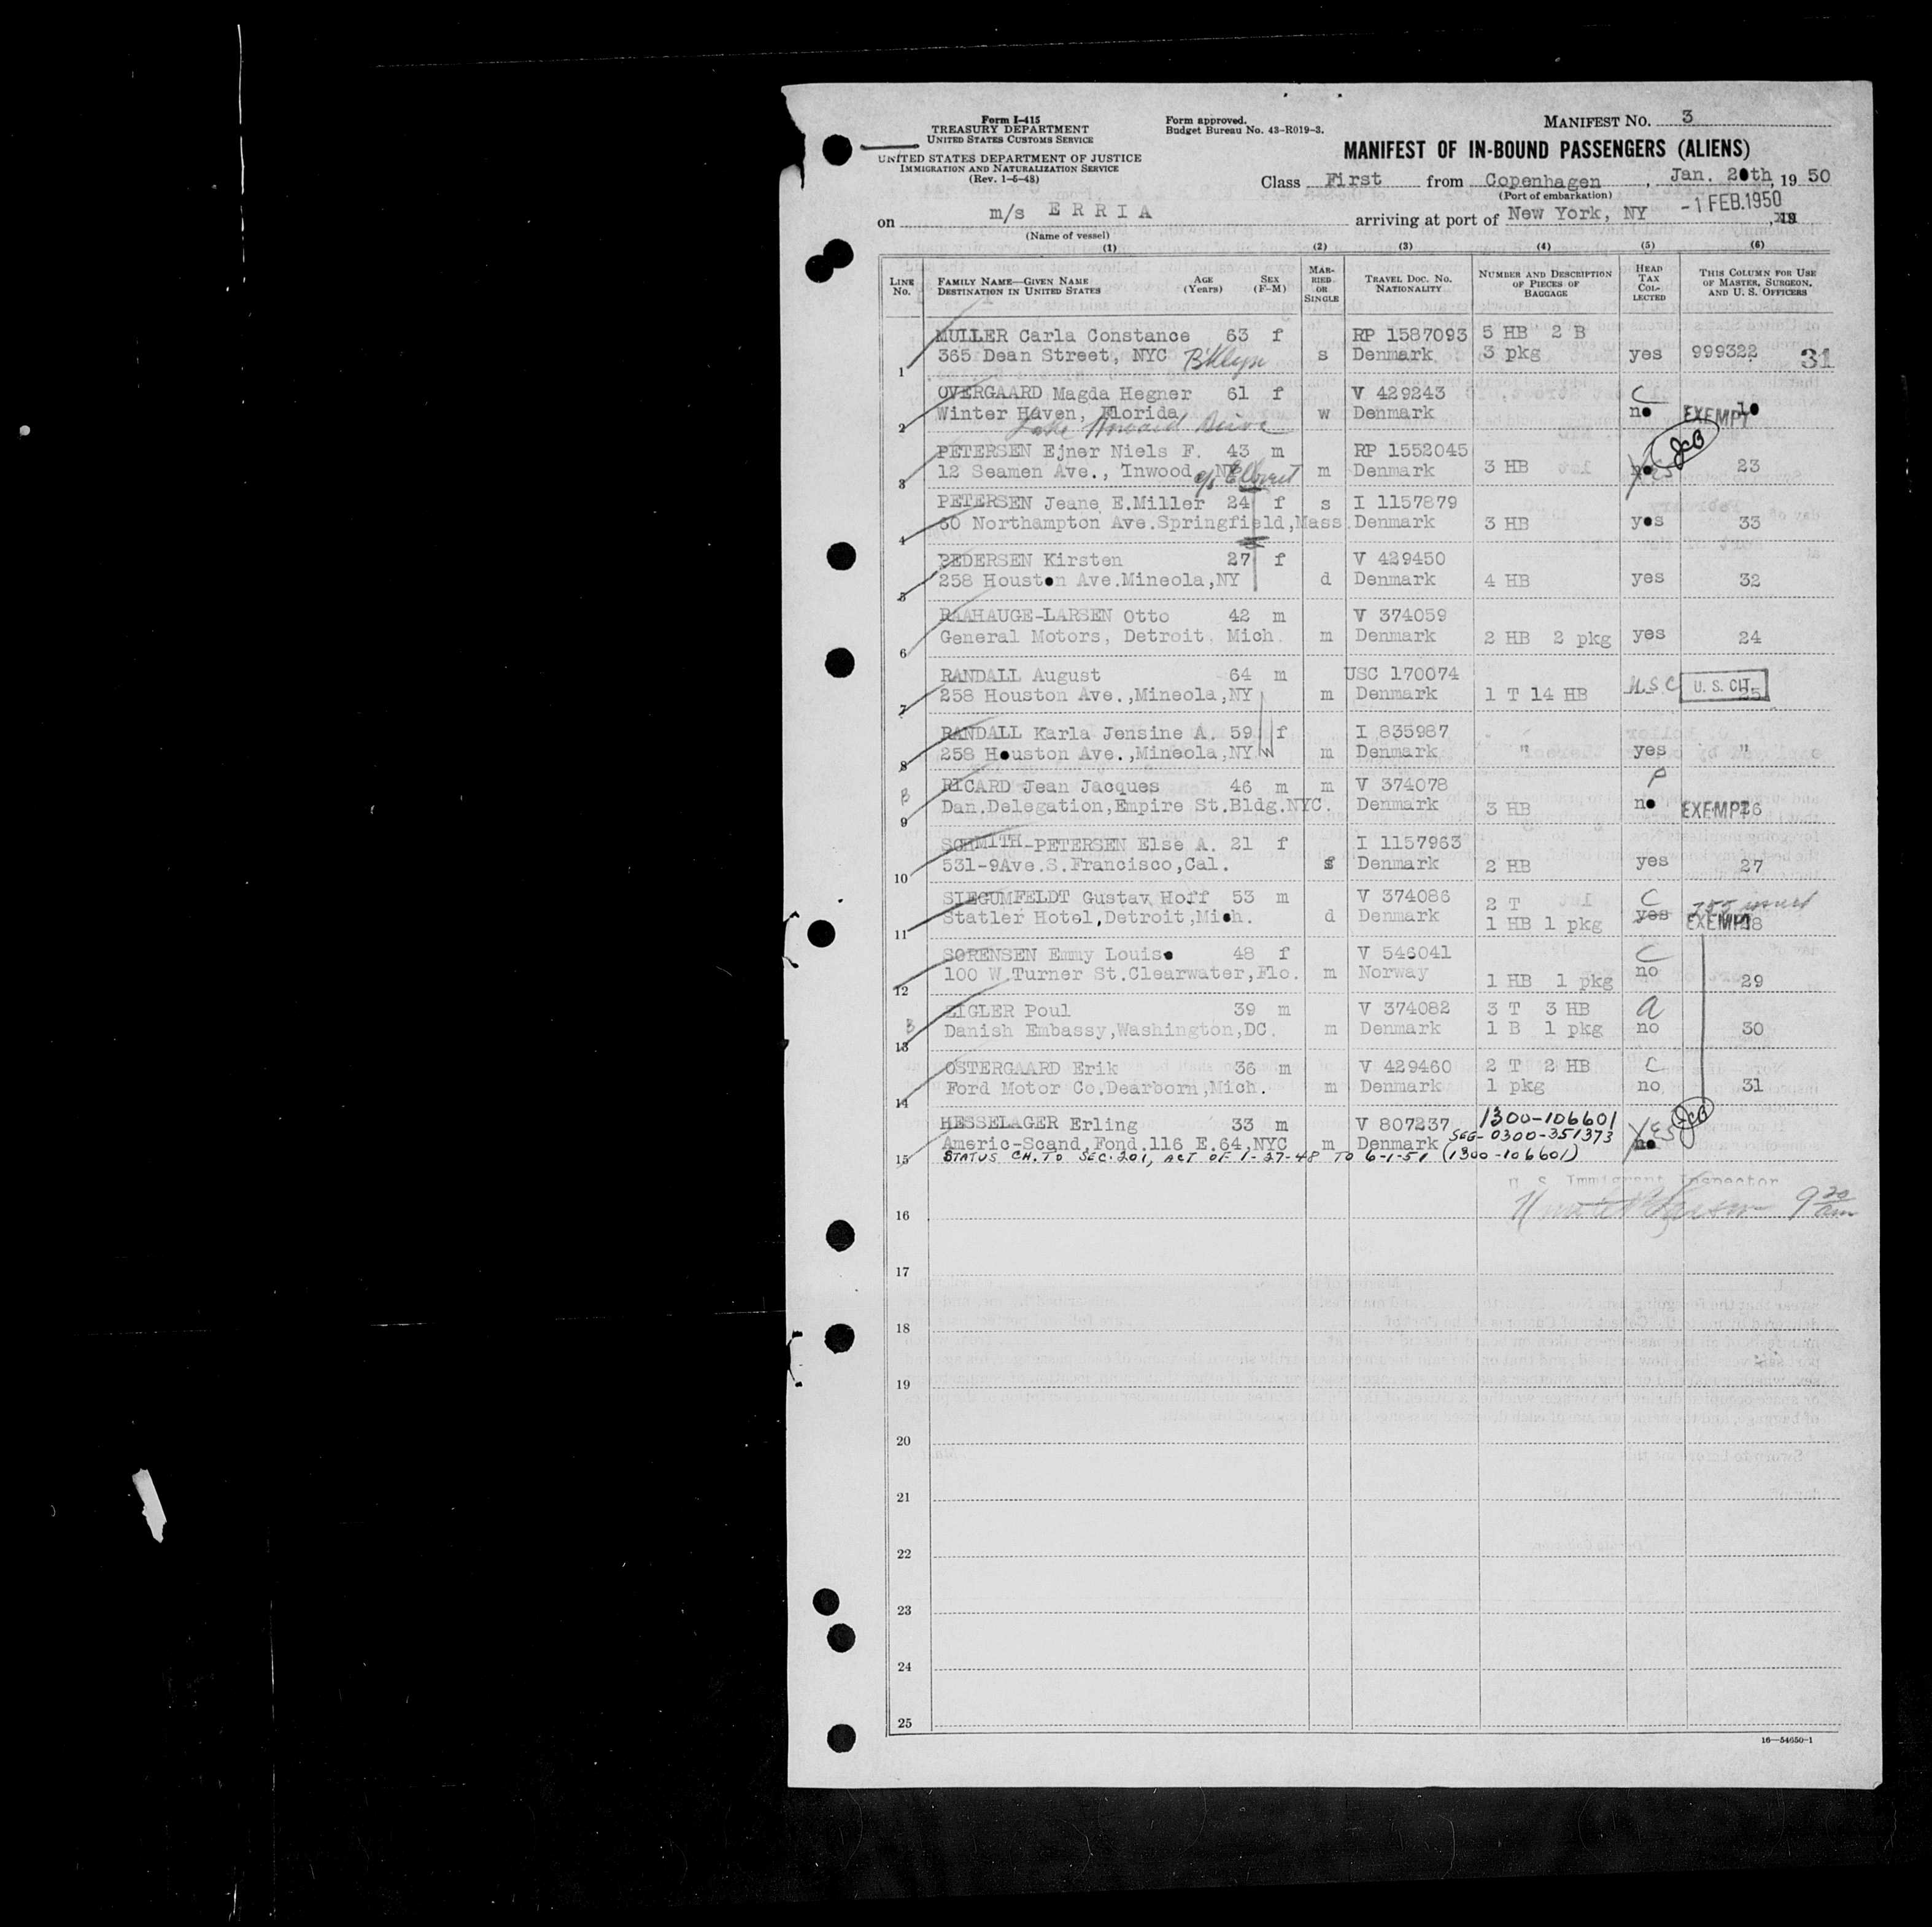 Form I-415
TREASURY DEPARTMENT
UNITED STATES CUSTOMS SERVICE
UNITED STATES DEPARTMENT OF JUSTICE
IMMIGRATION AND NATURALIZATION SERVICE
(Rev. 1-6-48)
Form approved.
Budget Bureau No. 43-R019-3.
MANIFEST NO. 3
MANIFEST OF IN-BOUND PASSENGERS (ALIENS)
Class First from Copenhagen, Jan. 20th, 19 50
(Port of embarkation)
on m/s ERRIA arriving at port of New York, NY -1 FEB.1950, 19
(Name of vessel)
(1) (2) (3) (4) (5) (6)
LINE No. FAMILY NAME—GIVEN NAME DESTINATION IN UNITED STATES AGE (Years) SEX (F-M) MARRIED OR SINGLE TRAVEL DOC. NO. NATIONALITY NUMBER AND DESCRIPTION OF PIECES OF BAGGAGE HEAD TAX COLLECTED THIS COLUMN FOR USE OF MASTER, SURGEON, AND U. S. OFFICERS
MULLER Carla Constance 63 f RP 1587093 5 HB 2 B
1 365 Dean Street, NYC B'klyn s Denmark 3 pkg yes 999322 31
OVERGAARD Magda Hegner 61 f V 429243 C
2 Winter Haven, Florida w Denmark no EXEMPT
Lake Howard Drive
PETERSEN Ejner Niels F. 43 m RP 1552045 JCB
3 12 Seamen Ave., Inwood, NY m Denmark 3 HB no yes 23
PETERSEN Jeane E.Miller 24 f s I 1157879
4 60 Northampton Ave.Springfield,Mass Denmark 3 HB yes 33
PEDERSEN Kirsten 27 f V 429450
5 258 Houston Ave.Mineola,NY d Denmark 4 HB yes 32
RAAHAUGE-LARSEN Otto 42 m V 374059
6 General Motors, Detroit. Mich. m Denmark 2 HB 2 pkg yes 24
RANDALL August 64 m USC 170074
7 258 Houston Ave.,Mineola,NY m Denmark 1 T 14 HB U.S.C U. S. CIT. 25
RANDALL Karla Jensine A. 59 f I 835987
8 258 Houston Ave.,Mineola,NY m Denmark " yes "
RICARD Jean Jacques 46 m m V 374078 P
9 Dan.Delegation,Empire St.Bldg.NYC. Denmark 3 HB no EXEMPT 26
SCHMITH-PETERSEN Else A. 21 f I 1157963
10 531-9Ave.S.Francisco,Cal. s Denmark 2 HB yes 27
SIEGUMFELDT Gustav Hoff 53 m V 374086 2 T C 755 issued
11 Statler Hotel,Detroit,Mich. d Denmark 1 HB 1 pkg yes EXEMPT 28
SORENSEN Emmy Louise 48 f V 546041 C
12 100 W.Turner St.Clearwater,Flo. m Norway 1 HB 1 pkg no 29
ZIGLER Poul 39 m V 374082 3 T 3 HB A
13 Danish Embassy,Washington,DC. m Denmark 1 B 1 pkg no 30
OSTERGAARD Erik 36 m V 429460 2 T 2 HB C
14 Ford Motor Co.Dearborn,Mich. m Denmark 1 pkg no 31
HESSELAGER Erling 33 m V 807237 1300-106601 JCB
Americ-Scand,Fond.116 E.64,NYC m Denmark SEG-0300-351373 YES no
15 STATUS CH. TO SEC. 201, ACT OF 1-27-48 TO 6-1-51 (1300-106601)
U. S. Immigrant Inspector
16 9 30 am
17
18
19
20
21
22
23
24
25
16—54650-1